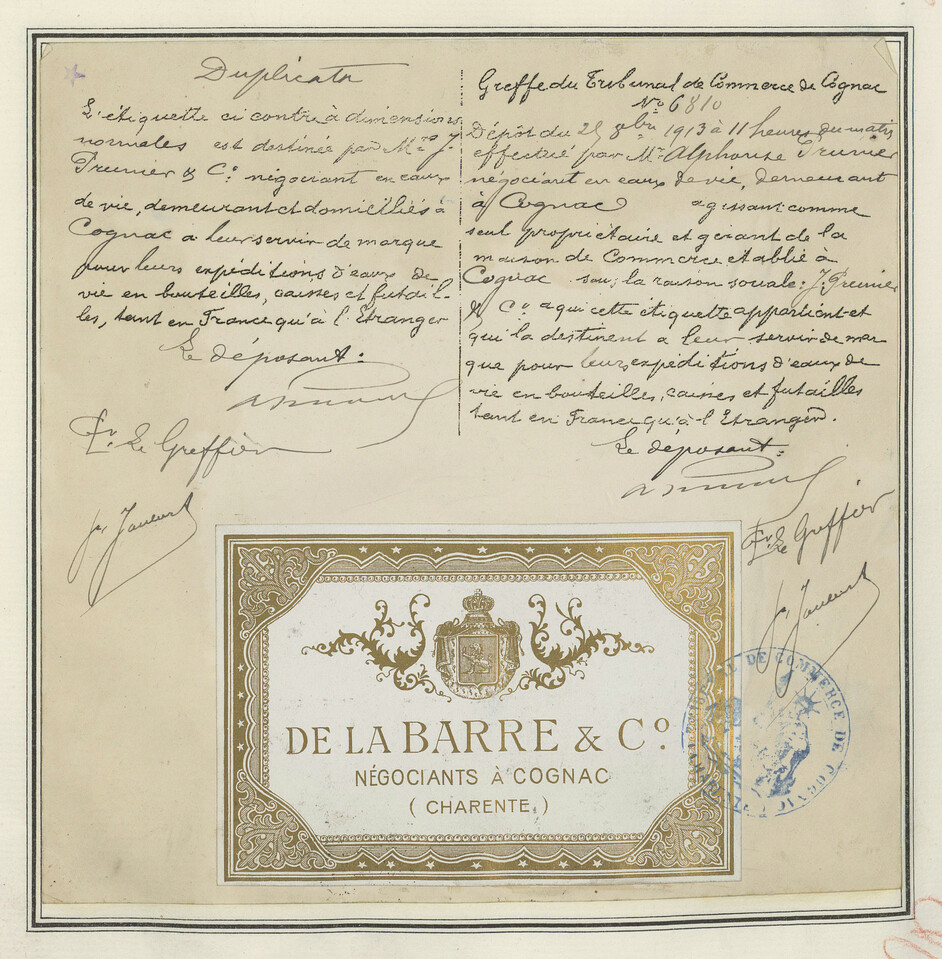 Duplicata
L'étiquette ci contre à dimensions
normales est destinée par Mrs J.
Prunier & Co négociant en eaux
de vie, demeurant et domiciliés à
Cognac à leur servir de marque
pour leurs expéditions d'eaux de
vie en bouteilles, caisses et futail-
les, tant en France qu'à l'Etranger
Le déposant:
Le Greffier
Greffe du Tribunal de Commerce de Cognac
No 6810
Dépôt du 25 8bre 1913 à 11 heures du matin
effectué par Mr Alphonse Prunier
négociant en eaux de vie, demeurant
à Cognac agissant comme
seul propriétaire et gérant de la
maison de Commerce établie à
Cognac sous la raison sociale: J. Prunier
& Co a qui cette étiquette appartient et
qui la destinent a leur servir de mar
que pour leurs expéditions d'eaux de
vie en bouteilles, caisses et futailles
tant en France qu'à l'Etranger.
Le déposant:
Le Greffier
DE LA BARRE & Co.
NÉGOCIANTS À COGNAC
( CHARENTE )
DE COMMERCE DE COGNAC